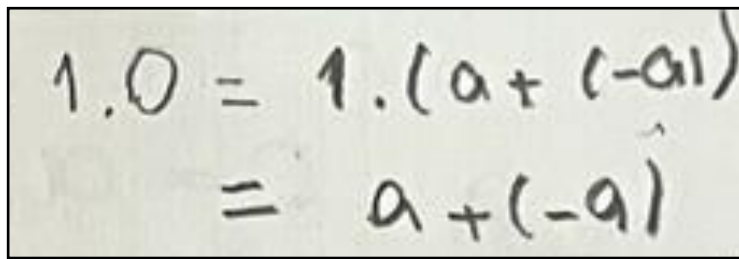 1.0 = 1.(a + (-a))
= a + (-a)